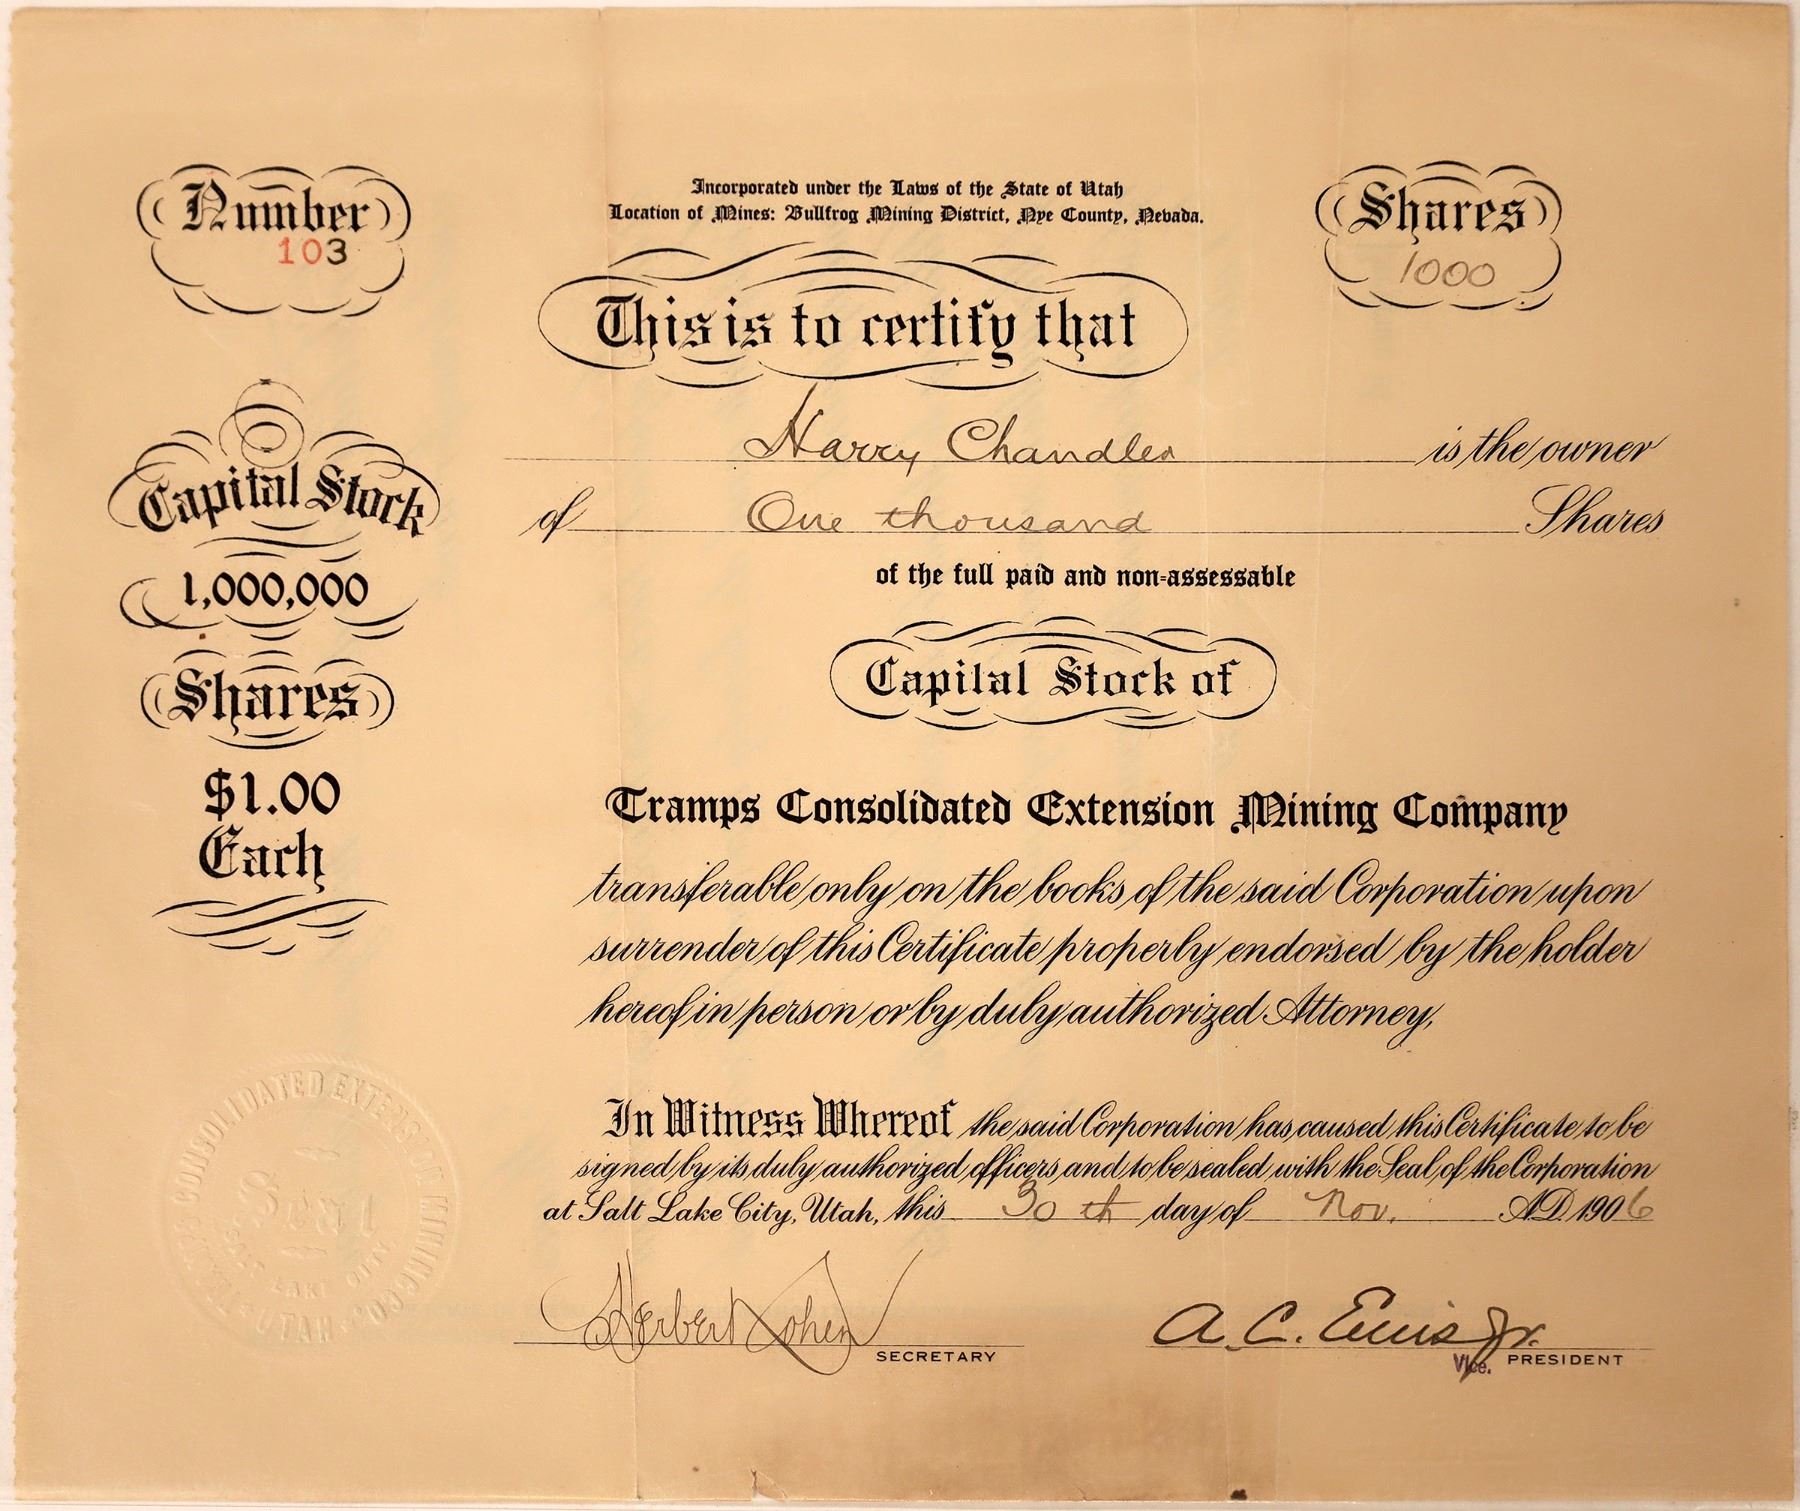 Incorporated under the Laws of the State of Utah
Location of Mines: Bullfrog Mining District, Nye County, Nevada.
Number
103
Shares
1000
This is to certify that
Harry Chandler is the owner
of One thousand Shares
of the full paid and non-assessable
Capital Stock of
Capital Stock
1,000,000
Shares
$1.00
Each
Tramps Consolidated Extension Mining Company
transferable only on the books of the said Corporation upon
surrender of this Certificate properly endorsed by the holder
hereof in person or by duly authorized Attorney,
In Witness Whereof the said Corporation has caused this Certificate to be
signed by its duly authorized officers and to be sealed with the Seal of the Corporation
at Salt Lake City, Utah, this 30th day of Nov. A.D. 1906
CONSOLIDATED EXTENSION MINING CO.
Seal
SALT LAKE CITY
UTAH
Herbert Cohen
SECRETARY
A. C. Ellis Jr.
Vice. PRESIDENT